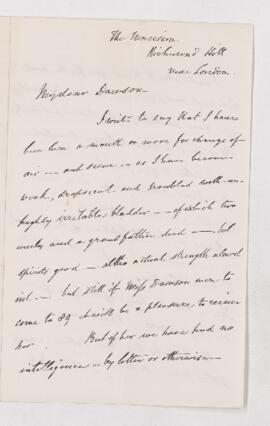 The Mansion
Richmond Hill
near London.
My dear Dawson
I write to say that I have
been here a month or more for change of
air — and scene — as I have become
weak, dropsical, and troubled with an
highly irritable bladder — of which two
uncles and a grandfather died — but
spirits good — altho actual strength almost
nil — but still if Miss Dawson were to
come to 89 it will be a pleasure to receive
her. But of her we have had no
intelligence — by letter or otherwise —